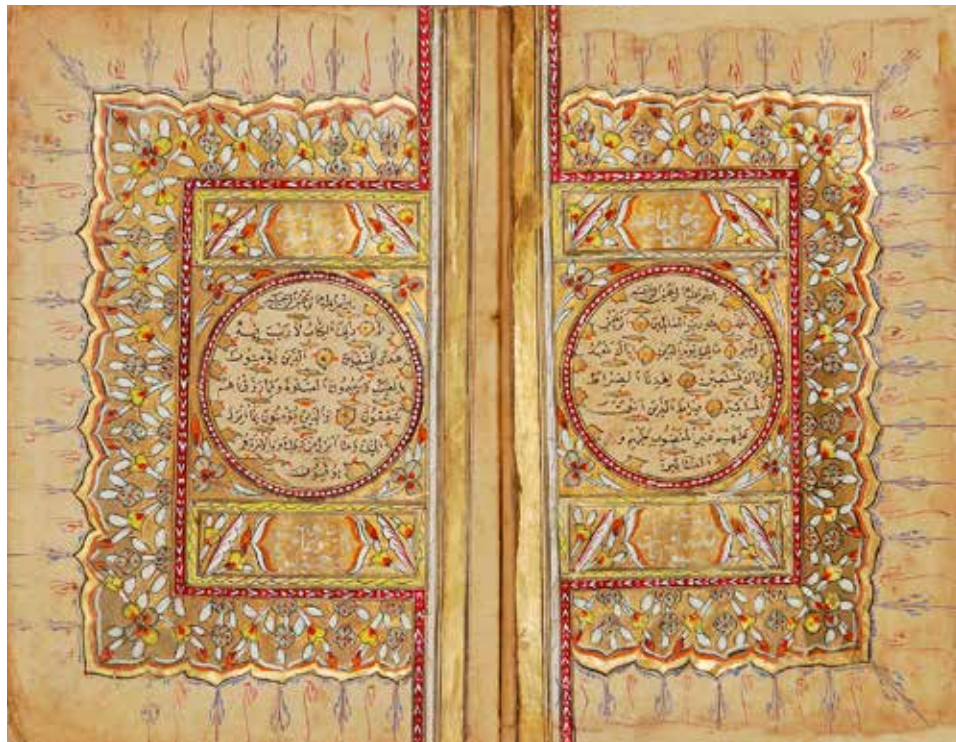 بسم الله الرحمن الرحيم
الحمد لله رب العالمين الرحمن
الرحيم مالك يوم الدين اياك نعبد
واياك نستعين اهدنا الصراط
المستقيم صراط الذين انعمت
عليهم غير المغضوب عليهم و
لا الضالين
بسم الله الرحمن الرحيم
الم ذلك الكتاب لا ريب فيه
هدى للمتقين الذين يؤمنون
بالغيب ويقيمون الصلوة ومما رزقناهم
ينفقون والذين يؤمنون بما انزل
اليك وما انزل من قبلك وبالاخرة هم
يوقنون